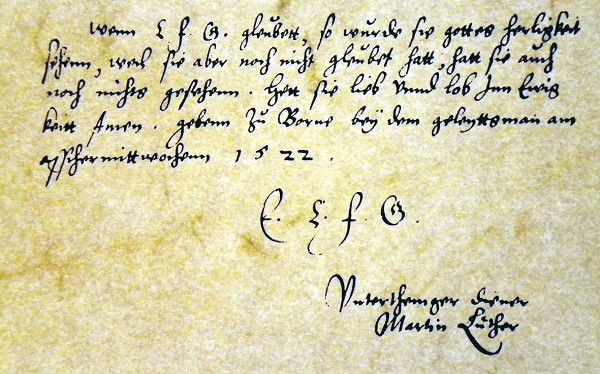 wenn E. f. G. gleubett, so wurde sie gottes herligkeit
sehenn, weil sie aber noch nicht gleubet hatt, hatt sie auch
noch nichts gesehenn. Gott sie lieb vnnd lob Inn Ewig
keitt Amen. gebenn Zu Borne bey dem geleyttsman am
asschermittwochenn 1522.
E. E. f. G.
Untertheniger diener
Martin Luther